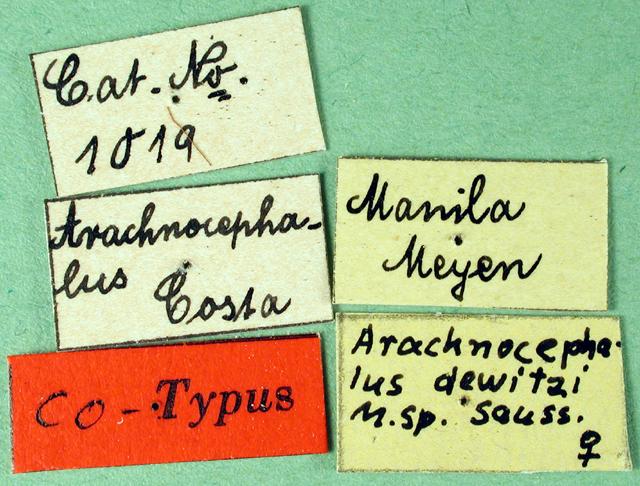 Cat. No.
1019
Arachnocepha-
lus
Costa
Co-Typus
Manila
Meyen
Arachnocepha-
lus dewitzi
n.sp. Sauss.
♀